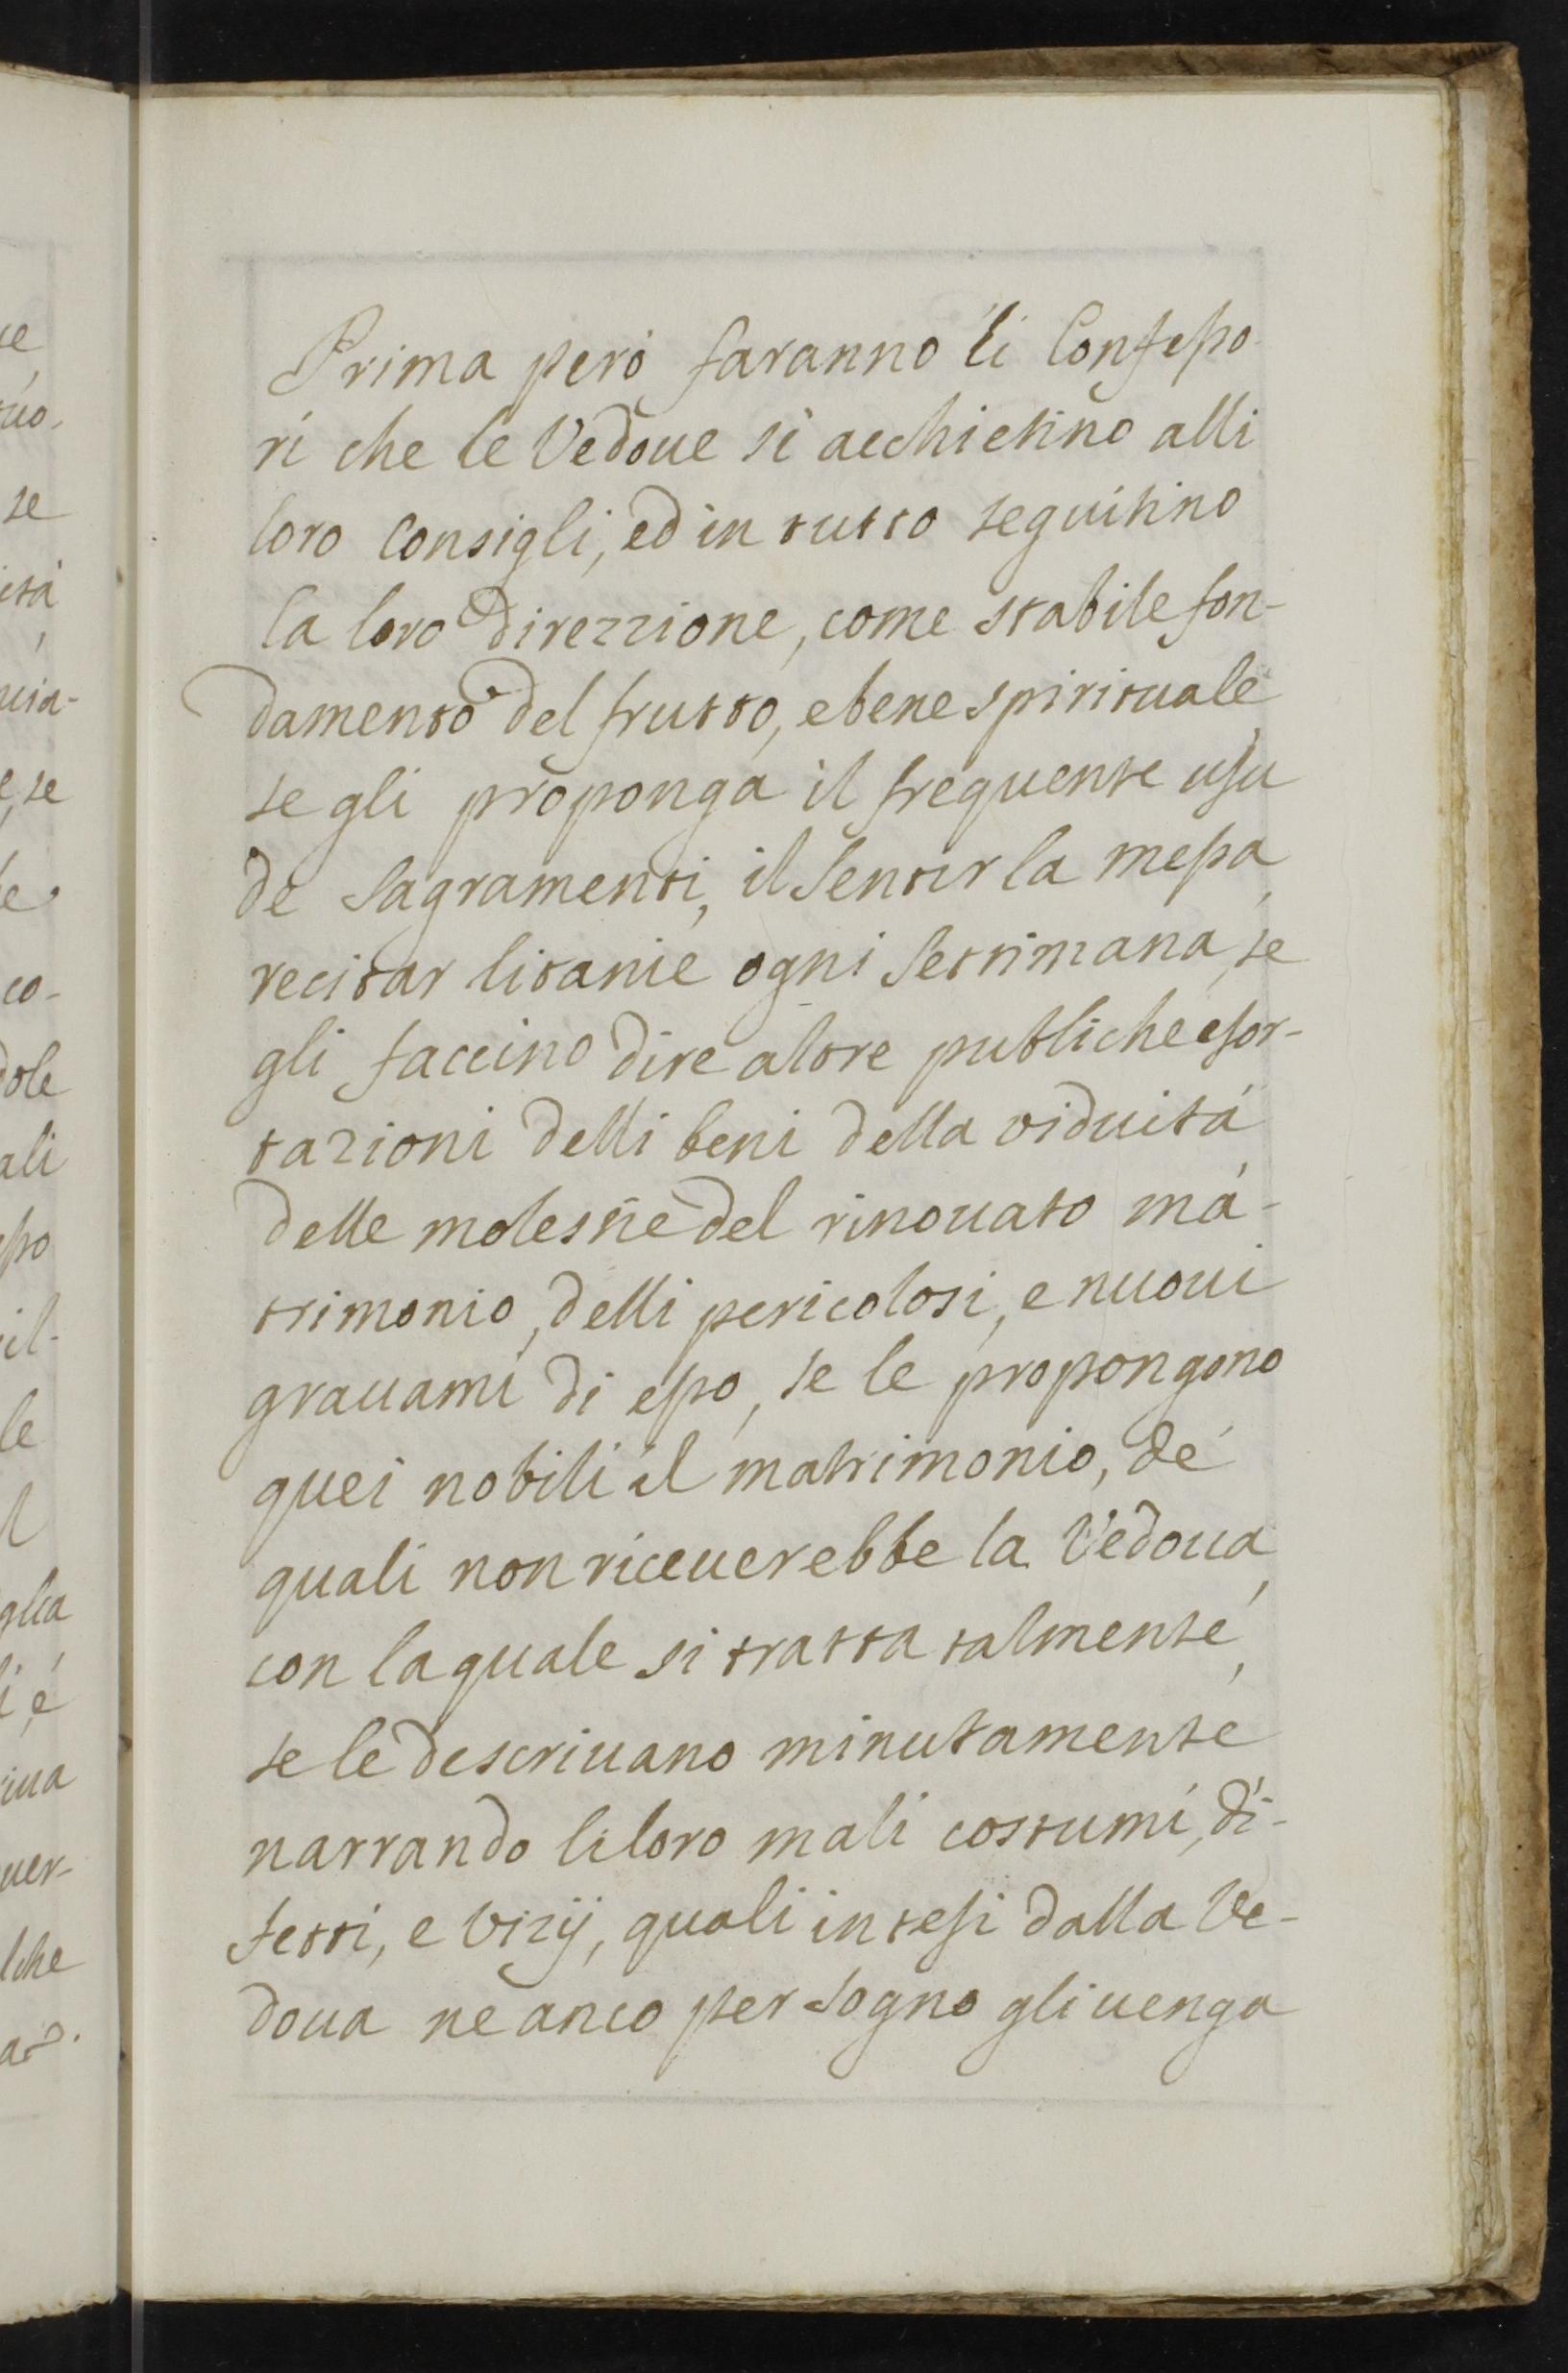 Prima però faranno li Confesso
ri che le Vedoue si acchietino alli
loro Consigli, ed in tutto seguitino
la loro direzzione, come stabile fon-
damento del frutto, e bene spirituale
se gli proponga il frequente usu
de Sagramenti, il Sentir la messa,
recitar litanie ogni Settimana, se
gli faccino dire altre publiche esor-
tazioni delli beni della viduità
delle molestie del rinouato ma-
trimonio, delli pericolosi, e nuoui
grauami di esso, se le propongono
quei nobili il matrimonio, de
quali non riceuerebbe la Vedoua,
con la quale si tratta talmente,
se le descriuano minutamente
narrando li loro mali costumi, di-
fetti, e Vizij, quali intesi dalla Ve-
doua ne anco per sogno gli uenga
se
co-
dole
ali
il-
le
glia
uer-
lche